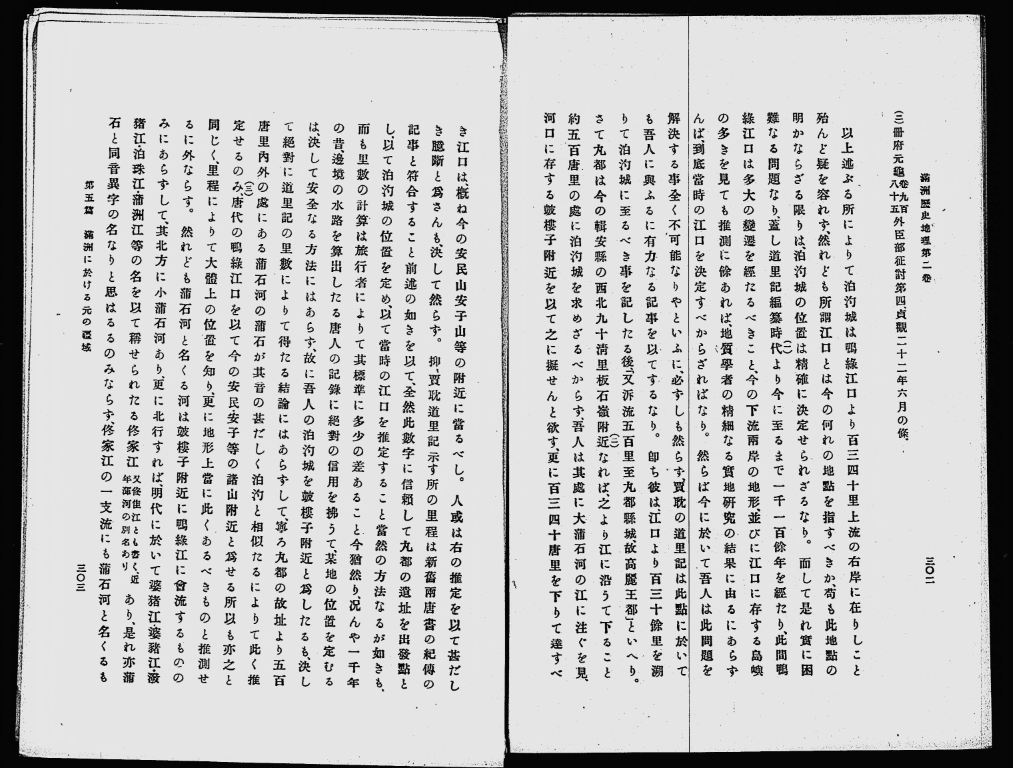 滿洲歷史地理第二卷
三〇二
(三)冊府元龜卷九百八十五外臣部征討第四貞觀二十二年六月の條、
以上述ぶる所によりて泊汋城は鴨綠江口より百三四十里上流の右岸に在りしこと
殆んど疑を容れず、然れども所謂江口とは今の何れの地點を指すべきか、苟も此地點の
明かならざる限りは、泊汋城の位置は精確に決定せられざるなり。而して是れ實に困
難なる問題なり、蓋し道里記編纂時代(一)より今に至るまで一千一百餘年を經たり、此間鴨
綠江口は多大の變遷を經たるべきこと、今の下流兩岸の地形、並びに江口に存する島嶼
の多きを見ても推測に餘あれば、地質學者の精細なる實地研究の結果に由るにあらず
んば、到底當時の江口を決定すべからざればなり。然らば今に於いて吾人は此問題を
解決する事全く不可能なりやといふに、必ずしも然らず、賈耽の道里記は此點に於いて
も吾人に與ふるに有力なる記事を以てするなり。卽ち彼は、江口より百三十餘里を溯
りて泊汋城に至るべき事を記したる後、「又泝流五百里至丸都縣城、故高麗王都」といへり。
さて丸都は今の輯安縣の西北九十淸里板石嶺附近(二)なれば、之より江に沿うて下ること
約五百唐里の處に泊汋城を求めざるべからず、吾人は其處に大蒲石河の江に注ぐを見、
河口に存する鼓樓子附近を以て之に擬せんと欲す、更に百三四十唐里を下りて達すべ
き江口は、槪ね今の安民山安子山等の附近に當るべし。人或は右の推定を以て甚だし
き臆斷と爲さんも、決して然らず。抑、賈耽道里記示す所の里程は新舊兩唐書の紀傳の
記事と符合すること前述の如きを以て、全然此數字に信賴して丸都の遺址を出發點と
し、以て泊汋城の位置を定め、以て當時の江口を推定すること當然の方法なるが如きも、
而も里數の計算は旅行者によりて其標準に多少の差あること今猶然り、况んや一千年
の昔邊境の水路を算出したる唐人の記錄に絕對の信用を拂うて、某地の位置を定むる
は、決して安全なる方法にはあらず、故に吾人の泊汋城を鼓樓子附近と爲したるも、決し
て絕對に道里記の里數によりて得たる結論にはあらずして、寧ろ丸都の故址より五百
唐里內外の處にある蒲石河の蒲石が其音の甚だしく泊汋と相似たるによりて此く推
定せるのみ、(三)唐代の鴨綠江口を以て今の安民安子等の諸山附近と爲せる所以も亦之と
同じく、里程によりて大體上の位置を知り、更に地形上當に此くあるべきものと推測せ
るに外ならず。然れども蒲石河と名くる河は鼓樓子附近に鴨綠江に會流するものの
みにあらずして、其北方に小蒲石河あり、更に北行すれば明代に於いて婆猪江、婆豬江、潑
猪江、泊珠江、蒲洲江等の名を以て稱せられたる佟家江又佟佳江とも書く、近年渾河の別名ありあり、是れ亦蒲
石と同音異字の名なりと思はるるのみならず、佟家江の一支流にも蒲石河と名くるも
第五篇 滿洲に於ける元の疆域
三〇三